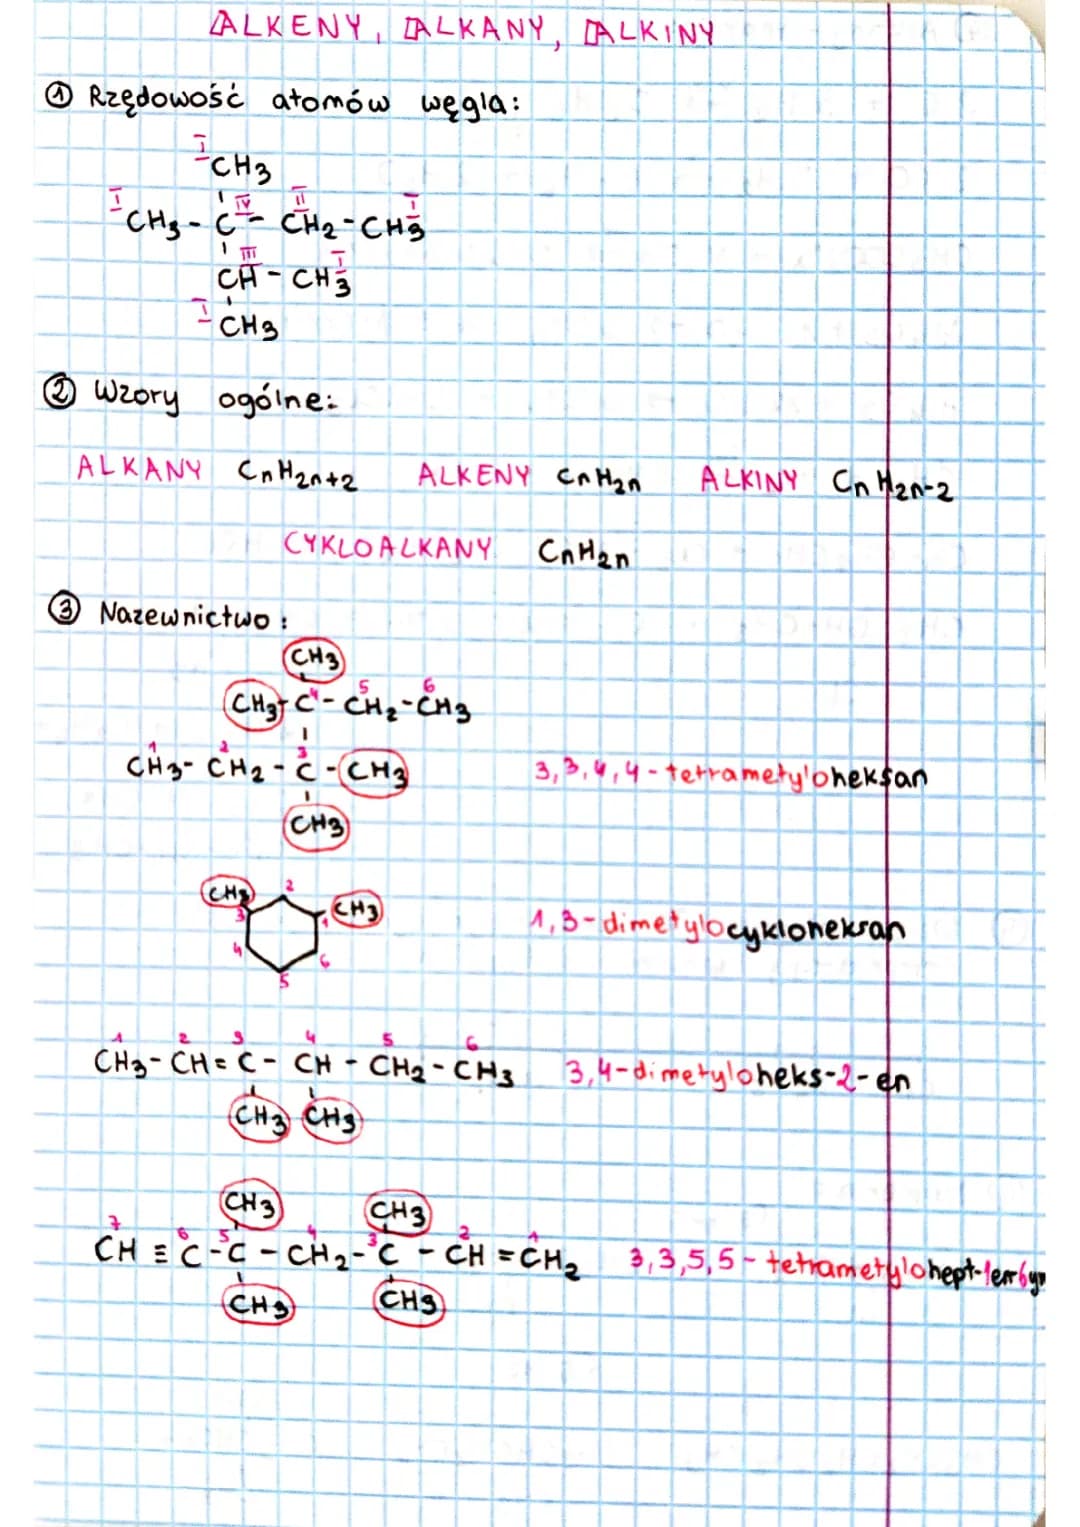 ALKENY, ALKANY, ALKINY
① Rzędowość atomów węgla:
I CH3
I CH3 - C IV - CH2 II - CH3 I
CH III - CH3 I
I CH3
② Wzory ogólne:
ALKANY CnH2n+2 ALKENY CnH2n ALKINY CnH2n-2
CYKLOALKANY CnH2n
③ Nazewnictwo:
CH3
4 5 6
CH3 - C - CH2 - CH3
1 2 3
CH3 - CH2 - C - CH3 3,3,4,4-tetrametyloheksan
CH3
CH3 2 CH3
3 1
1,3-dimetylocykloheksan
4 6
5
1 2 3 4 5 6
CH3 - CH = C - CH - CH2 - CH3 3,4-dimetyloheks-2-en
CH3 CH3
CH3 CH3
7 6 5 4 3 2 1
CH ≡ C - C - CH2 - C - CH = CH2 3,3,5,5-tetrametylohept-1en6yn
CH3 CH3